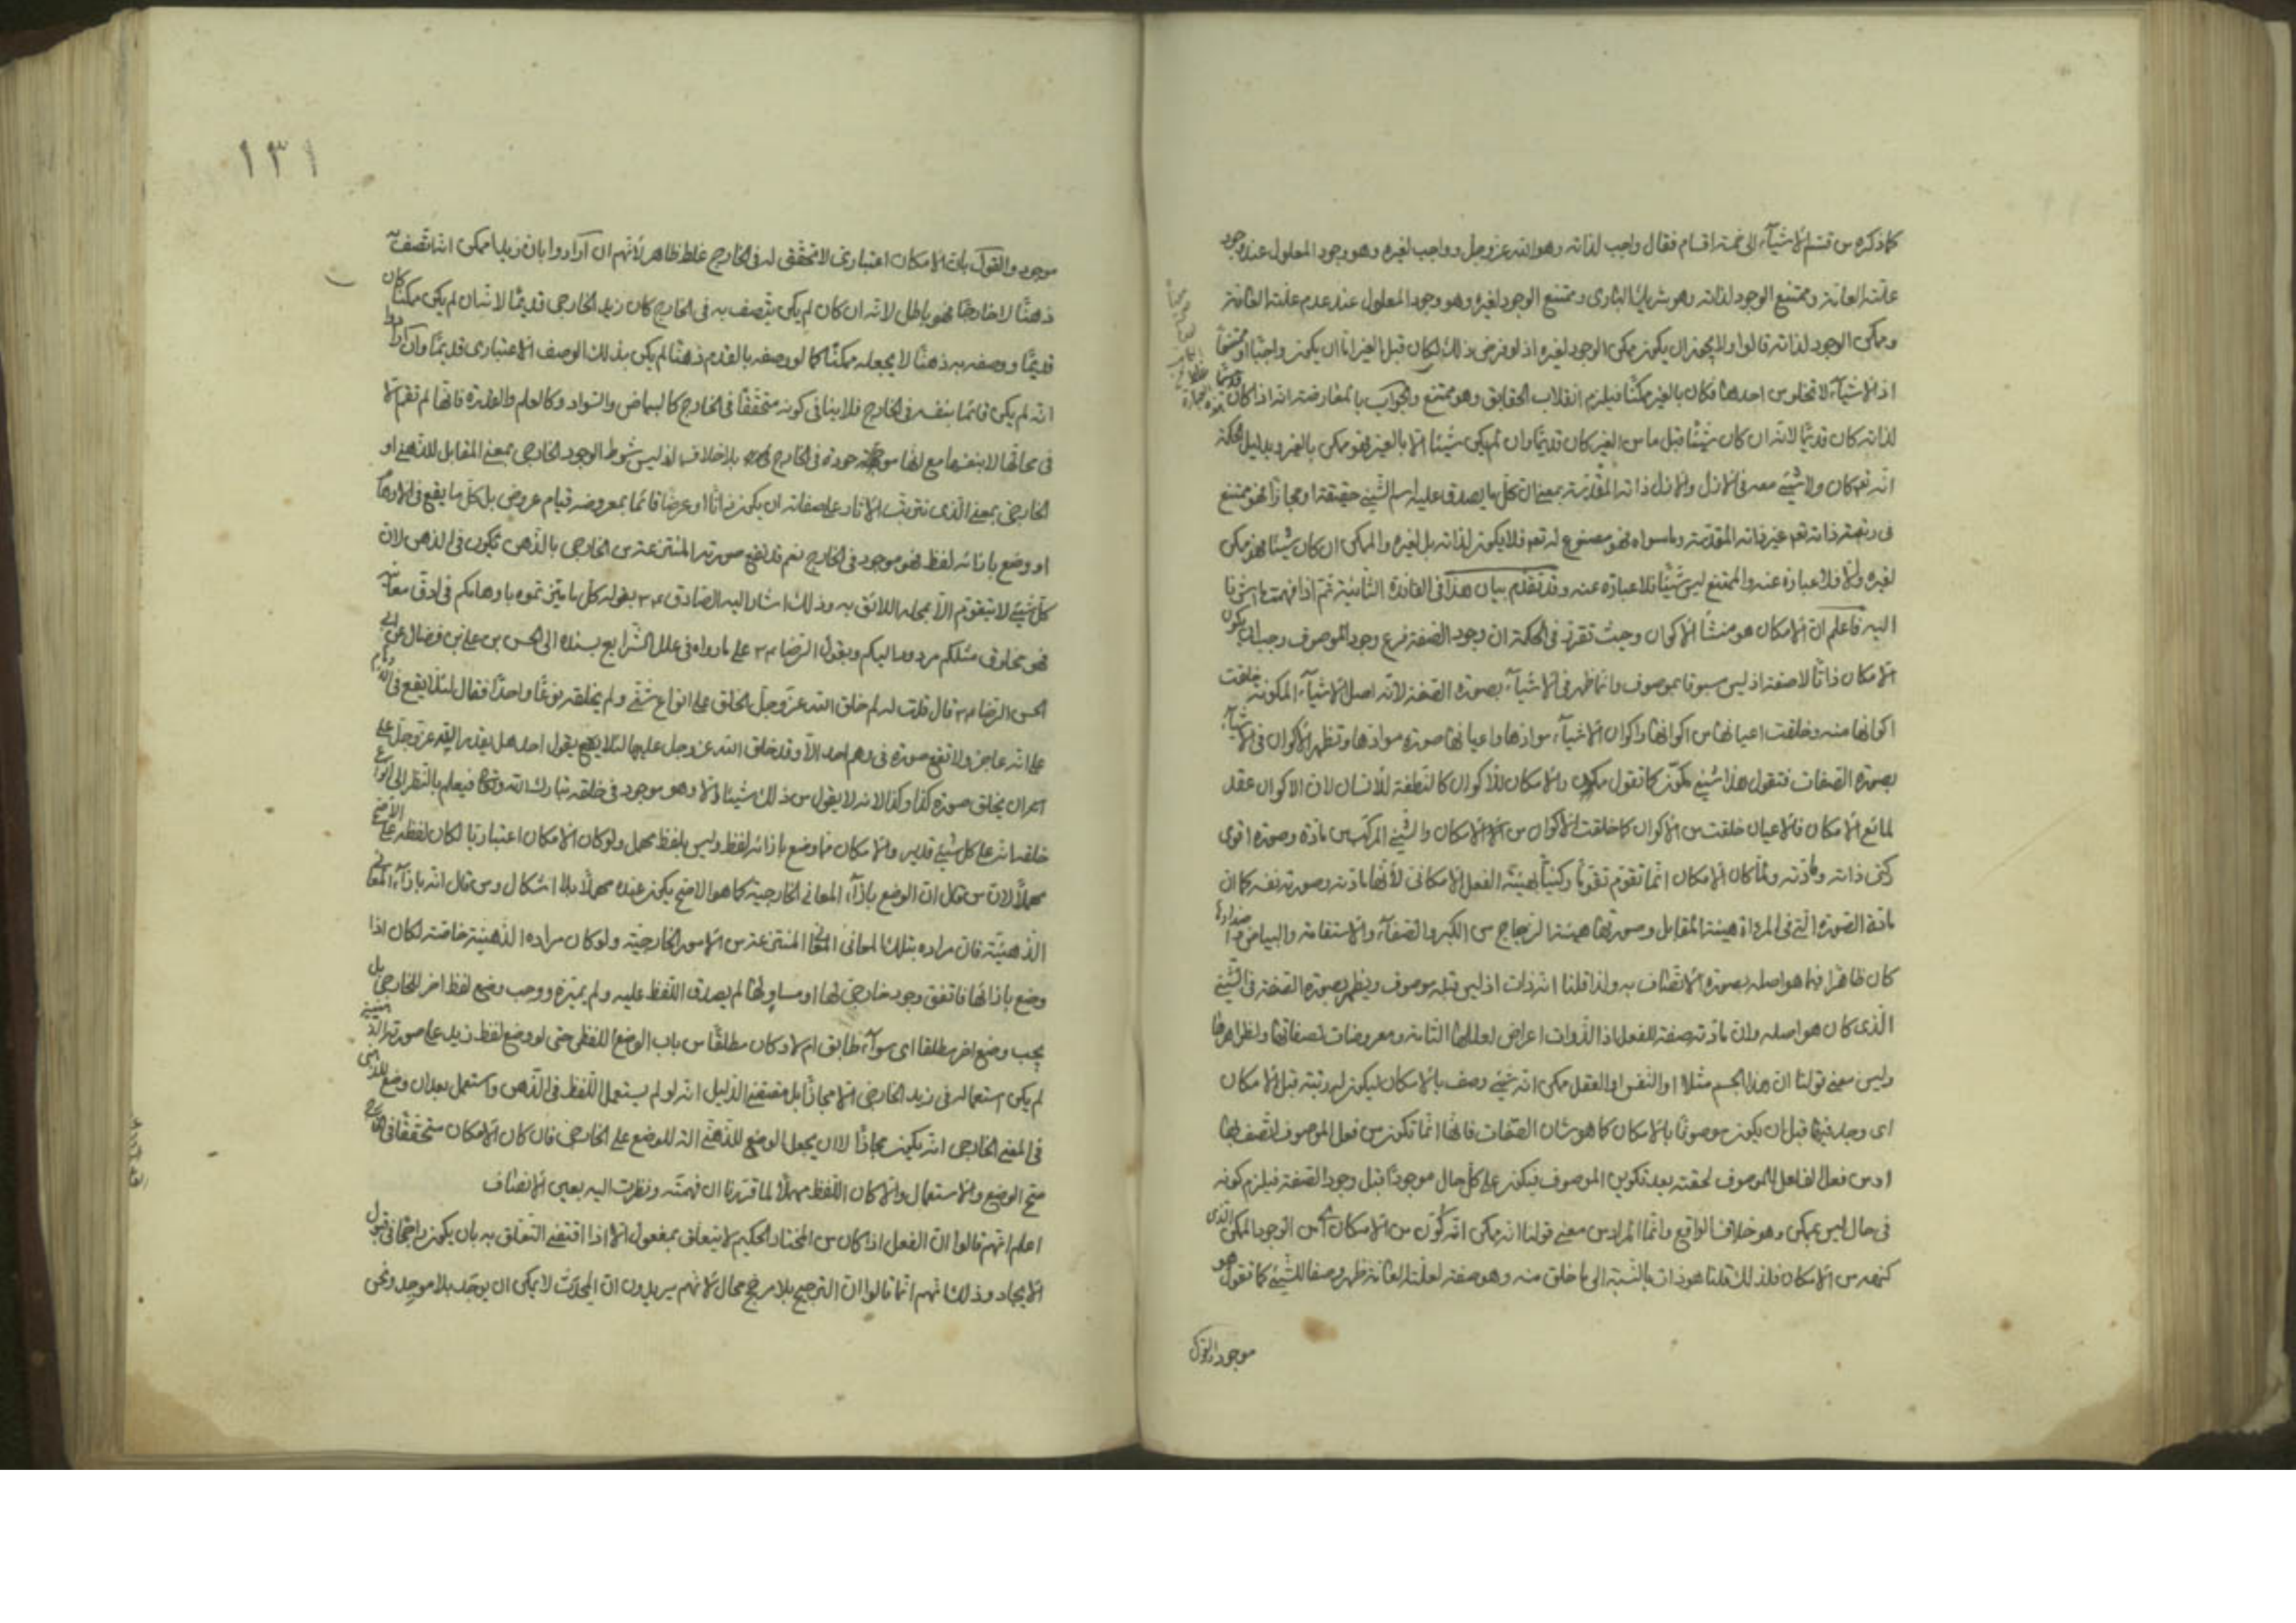 كما ذكره من قسم الأشياء الى خمسة اقسام فقال واجب لذاته وهو الله عز وجل وواجب لغيره وهو وجود المعلول عند وجود
علته التامة وممتنع الوجود لذاته وهو شريك البارى وممتنع الوجود لغيره وهو وجود المعلول عند عدم علته التامة
وممكن الوجود لذاته قالوا ولا يجوز ان يكون ممكن الوجود لغيره اذ لو فرض ذلك لكان قبل الغير اما ان يكون واجبا او ممتنعا
اذ الأشياء لا تخلو من احدها فكان بالغير ممكنا فيلزم انقلاب الحقايق وهو ممتنع والجواب بالمعارضة انه اذا كان
لذاته كان قديما لانه ان كان شيئا قبل ما من الغير كان قديما وان لم يكن شيئا الا بالغير فهو ممكن بالغير وبدليل الحكمة
انه تعالى كان ولا شيئ معه فى الازل والازل ذاته المقدسة بمعنى ان كل ما يصدق عليه اسم الشيئ حقيقة او مجازا فهو ممتنع
فى رتبة ذاته تعالى غير ذاته المقدسة وما سواه فهو مصنوع له تعالى فلا يكون لذاته بل لغيره والممكن ان كان شيئا فهو ممكن
لغيره والا فلا عبارة عنه والممتنع ليس شيئا فلا عبارة عنه وقد تقدم بيان هذا فى الفائدة الثانية ثم اذا فهمت ما اشرنا
اليه فاعلم ان الامكان هو منشأ الأكوان وحيث تقرر فى الحكمة ان وجود الصفة فرع وجود الموصوف وجب ان يكون
الامكان ذاتا لا صفة اذ ليس مسبوقا بموصوف وانما ظهر فى الأشياء بصورة الصفة لانه اصل الأشياء المكونة خلقت
اكوانها منه وخلقت اعيانها من اكوانها واكوان الأشياء موادها واعيانها صورة موادها وتظهر الأكوان فى الأشياء
بصورة الصفات فتقول هذا شيئ مكون كما تقول ممكن والامكان للأكوان كالنطفة للانسان لان الاكوان عقد
لمائع الامكان فالاعيان خلقت من الأكوان كما خلقت الأكوان من الامكان والشيئ المركب من مادة وصورة اقوى
ركنى ذاته مادته ولما كان الامكان انما تقوم تقوما ركنيا بهيئة الفعل الامكانى لأنها مادته وصورته نفسه كما ان
مادة الصورة التى فى المرآة هيئة المقابل وصورتها هيئة الزجاج من الكبر والصفاء والاستقامة والبياض واضدادها
كان ظاهرا فيما هو اصله بصورة الاتصاف به ولذا قلنا انه ذات اذ ليس قبله موصوف ويظهر بصورة الصفة فى الشيئ
الذى كان هو اصله ولان مادته صفة للفعل اذ الذوات اعراض لعللها التامة ومعروضات لصفاتها ولظواهرها
وليس معنى قولنا ان هذا الجسم مثلا او النفس او العقل ممكن انه شيئ وصف بالامكان ليكون له رتبة قبل الامكان
اى وجد فيها قبل ان يكون موصوفا بالامكان كما هو شان الصفات فانها انما تكون من فعل الموصوف اتصف بها
او من فعل الفاعل للموصوف لحقته بعد تكوين الموصوف فيكون على كل حال موجودا قبل وجود الصفة فيلزم كونه
فى حال ليس بممكن وهو خلاف الواقع وانما المراد من معنى قولنا انه ممكن انه كون من الامكان اى من الوجود الممكن الذى
كنهه من الامكان فلذلك قلنا هو ذات بالنسبة الى ما خلق منه وهو صفة لعلته التامة ظهر وصفا للشيئ كما تقول هو
موجود والقول
١٣١
موجود والقول بان الامكان اعتبارى لا تحقق له فى الخارج غلط ظاهر لانهم ان ارادوا بان زيدا ممكن اتصافه به
ذهنا لا خارجا فهو باطل لانه ان كان لم يكن يتصف به فى الخارج كان زيد الخارجى قديما لانه ان لم يكن ممكنا كان
قديما ووصفه به ذهنا لا يجعله ممكنا كما لو وصفه بالقدم ذهنا لم يكن بذلك الوصف الاعتبارى قديما وان ارادوا
انه لم يكن قائما بنفسه فى الخارج فلا ينافى كونه متحققا فى الخارج كالبياض والسواد وكالعلم والقدرة فانها لم تقم الا
فى محالها لا بنفسها مع انها موجودة فى الخارج بلا خلاف اذ ليس شرط الوجود الخارجى بمعنى المقابل للذهنى او
الخارجى بمعنى الذى تترتب الاثار على صفاته ان يكون ذاتا او عرضا قائما بمعروضه قيام عروض بل كل ما يقع فى الاوهام
او وضع بازائه لفظ فهو موجود فى الخارج نعم قد تقع صورته المنتزعة من الخارجى بالذهن تكون فى الذهن لان
كل شيئ لا يتقوم الا بمحله اللائق به وذلك اشار اليه الصادق ع بقوله كل ما ميزتموه باوهامكم فى ادق معانيه
فهو مخلوق مثلكم مردود اليكم وبقول الرضا ع على ما رواه فى علل الشرايع بسنده الى الحسن بن على بن فضال عن ابى
الحسن الرضا ع قال قلت له لم خلق الله عز وجل الخلق على انواع شتى ولم يخلقه نوعا واحدا فقال لئلا يقع فى الاوهام
على انه عاجز ولا تقع صورة فى وهم احد الا وقد خلق الله عز وجل عليها لئلا يقول احد هل يقدر الله عز وجل على
ان يخلق صورة كذا وكذا لانه لا يقول من ذلك شيئا الا وهو موجود فى خلقه تبارك الله وتعالى فيعلم بالنظر الى انواع
خلقه انه على كل شيئ قدير والامكان مما وضع بازائه لفظ وليس بلفظ مهمل ولو كان الامكان اعتباريا لكان لفظه على الاصح
مهملا لان من قال ان الوضع بازاء المعانى الخارجية كما هو الاصح يكون عنده مهملا بلا اشكال ومن قال انه بازاء المعانى
الذهنية فان مراده بتلك المعانى المنتزعة من الامور الخارجية ولو كان مراده الذهنية خاصة لكان اذا
وضع بازائها فاتفق وجود خارجى لها او مساو لها لم يصدق اللفظ عليه ولم يميزه ووجب وضع لفظ اخر للخارجى بل
يجب وضع اخر مطلقا اى سواء طابق ام لا وكان مطلقا من باب الوضع اللفظى حتى لو وضع لفظ زيد على صورته الذهنية
لم يكن استعماله فى زيد الخارجى الا مجازا بل مقتضى الدليل انه لو لم يستعمل اللفظ فى الذهنى واستعمل بعد ان وضع للذهنى
فى المعنى الخارجى انه يكون مجازا لا ان يجعل الوضع للذهنى الة للوضع على الخارجى فان كان الامكان متحققا فى الخارج
صح الوضع والاستعمال والا كان اللفظ مهملا لما قررنا ان فهمته ونظرت اليه بعين الانصاف
اعلم انهم قالوا ان الفعل اذا كان من المختار الحكيم لا يتعلق بمفعول الا اذا اقتضى التعلق به بان يكون راجحا فى قبول
الايجاد وذلك انهم انما قالوا ان الترجيح بلا مرجح محال لانهم يريدون ان المحدث لا يمكن ان يوجد بلا موجد ونحن